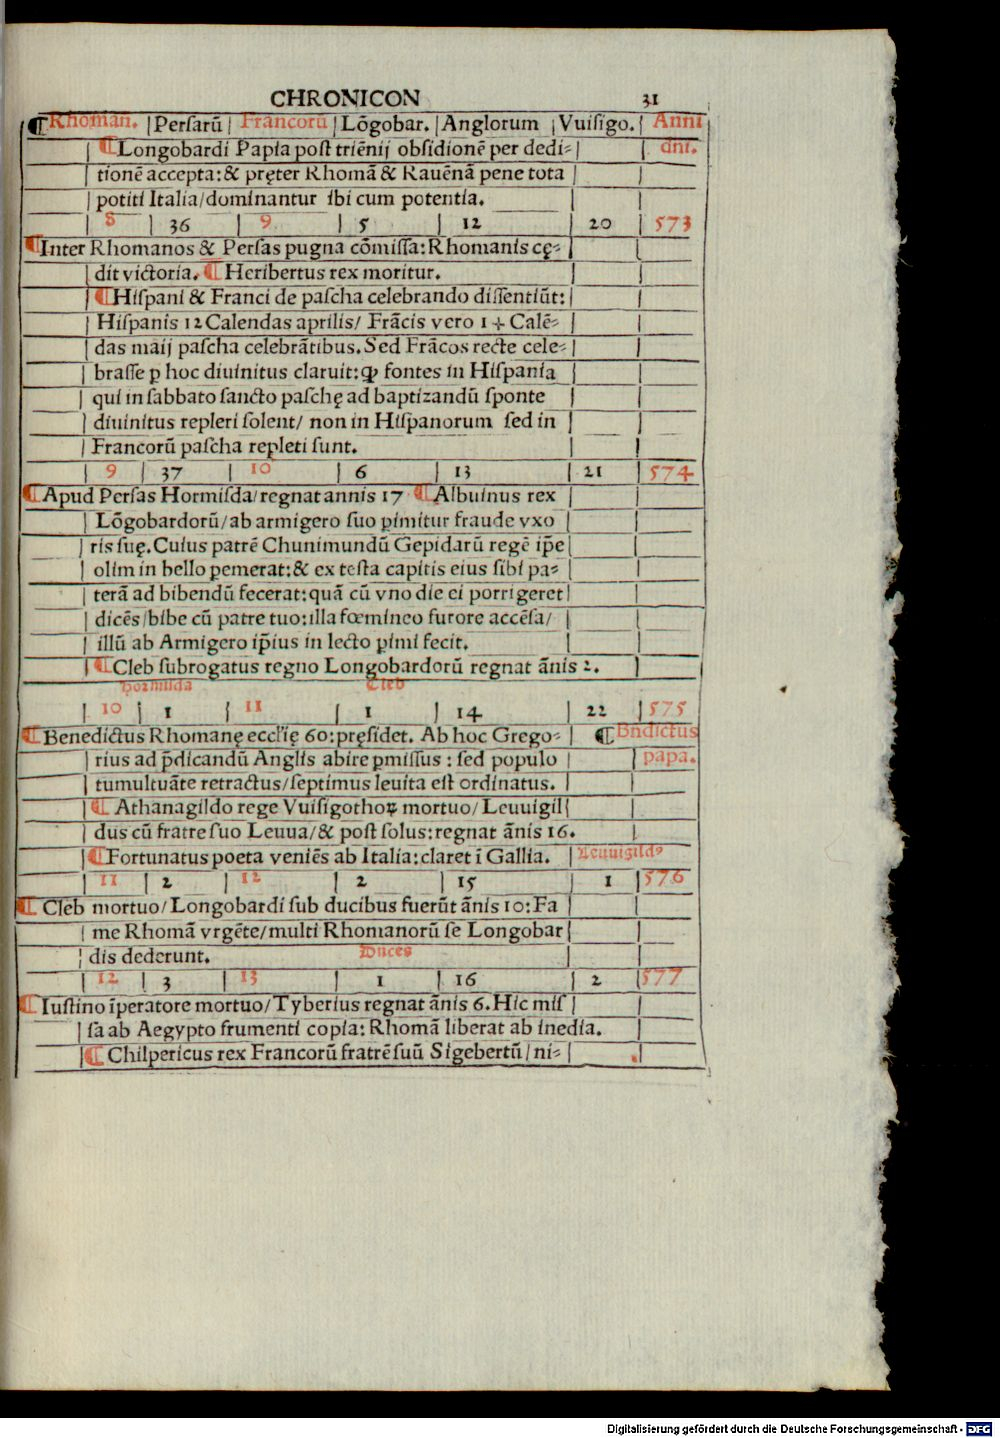 CHRONICON 31
¶Rhoman. |Perſarū| Francorū |Lōgobar. |Anglorum |Vuiſigo.| Anni
¶Longobardi Papia poſt triēnij obſidionē per dedi⸗ dni.
tionē accepta:& pręter Rhomā & Rauēnā pene tota
potiti Italia/dominantur ibi cum potentia.
8 | 36 | 9 | 5 | 12 | 20 | 573
¶Inter Rhomanos & Perſas pugna cōmiſſa:Rhomanis cę⸗
dit victoria. ¶Heribertus rex moritur.
¶Hiſpani & Franci de paſcha celebrando diſſentiūt:
Hiſpanis 12 Calendas aprilis/ Frācis vero 14 Calē⸗
das maij paſcha celebrātibus. Sed Frācos recte cele⸗
braſſe ꝑ hoc diuinitus claruit:ꝙ fontes in Hiſpania
qui in ſabbato ſancto paſchę ad baptizandū ſponte
diuinitus repleri ſolent/ non in Hiſpanorum ſed in
Francorū paſcha repleti ſunt.
9 | 37 | 10 | 6 | 13 | 21 | 574
¶Apud Perſas Hormiſda/regnat annis 17 ¶Albuinus rex
Lōgobardorū/ab armigero ſuo ꝑimitur fraude vxo
ris ſuę. Cuius patrē Chunimundū Gepidarū regē ip̄e
olim in bello ꝑemerat:& ex teſta capitis eius ſibi pa⸗
terā ad bibendū fecerat:quā cū vno die ei porrigeret
dicēs/bibe cū patre tuo:illa fœmineo furore accēſa/
illū ab Armigero ip̄ius in lecto ꝑimi fecit.
¶Cleb ſubrogatus regno Longobardorū regnat ānis 2.
Hormiſda Cleb
10 | 1 | 11 | 1 | 14 | 22 | 575
¶Benedictus Rhomanę eccl'ię 60:pręſidet. Ab hoc Grego⸗ ¶Bn̄dictus
rius ad p̄dicandū Anglis abire ꝑmiſſus : ſed populo papa.
tumultuāte retractus/ſeptimus leuita eſt ordinatus.
¶Athanagildo rege Vuiſigothoꝝ mortuo/ Leuuigil
dus cū fratre ſuo Leuua/& poſt ſolus:regnat ānis 16.
¶Fortunatus poeta veniēs ab Italia:claret ī Gallia. Leuuigildꝰ
11 | 2 | 12 | 2 | 15 | 1 | 576
¶Cleb mortuo/Longobardi ſub ducibus fuerūt ānis 10:Fa
me Rhomā vrgēte/multi Rhomanorū ſe Longobar
dis dederunt. Duces
12 | 3 | 13 | 1 | 16 | 2 | 577
¶Iuſtino īperatore mortuo/Tyberius regnat ānis 6. Hic miſ
ſa ab Aegypto frumenti copia: Rhomā liberat ab inedia.
¶Chilpericus rex Francorū fratrē ſuū Sigebertū/ni⸗
Digitalisierung gefördert durch die Deutsche Forschungsgemeinschaft - DFG